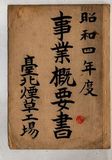 昭和四年度
事業概要書
臺北煙草工場